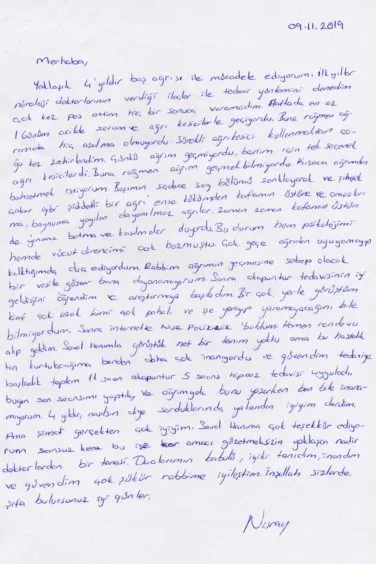 09.11.2019
Merhaba,
Yaklaşık 4 yıldır baş ağrısı ile mücadele ediyorum. İlk yıllar
nöroloji doktorlarının verdiği ilaçlar ile tedavi yöntemini denedim
çok kez pes ettim hiç bir sonuca varamadım. Haftada en az
1 Günüm acilde serum ve ağrı kesicilerle geçiyordu. Buna rağmen ağ
rımda hiç azalma olmuyordu. Sürekli ağrıkesici kullanmaktan
kez zehirlendim. Çünkü ağrım geçmiyordu, benim için tek seçenek
ağrı kesicilerdi. Buna rağmen ağrım geçmek bilmiyordu kısaca ağrımdan
bahsetmek istiyorum. Başımın sadece sağ bölümü zonklayarak ve şimşek
çakar gibi şiddetli bir ağrı ense kökümden kafamın üstüne ve omuzları
ma, boynuma yayılan dayanılmaz ağrılar. Zaman zaman kafamın üstün
de yanma batma ve kasılmalar duyardı. Bu durum hem psikolojimi
hemde vücut direncimi çok bozmuştu. Çok gece ağrıdan uyuyamayıp
kalktığımda dua ediyordum. Rabbim ağrımın geçmesine sebep olacak
bir vesile göster bana dayanamıyorum. Sonra akapuntur tedavisinin iyi
geldiğini öğrendim ve araştırmaya başladım. Bir çok yerle görüştüm
kimi çok uzak kimi çok pahalı ve işe yarayıp yaramayacağını bile
bilmiyordum. Sonra internette Nua Poliklinik 'buldum hemen randevu
alıp geldim. Sevel Hanımla görüştük net bir tanım yoktu ama bu hastalık
tan kurtulacağıma benden daha çok inanıyordu ve güvendim tedaviye
başladık toplam 11 seans akapuntur 5 seans tıpsaz tedavisi uyguladık
bugün son seansımı yaptık ve ağrımda bunu yazarken ben bile inana
mıyorum. 4 yıldır, nasılsın diye sorduklarında yalandan iyiyim derdim.
Ama şimdi gerçekten çok iyiyim. Sevel Hanıma çok teşekkür ediyo
rum sonsuz kere bu işe amacı gözetmeksizin yaklaşan nadir
doktorlardan bir tanesi. Dualarımın kabulü, iyiki tanıdım, inandım
ve güvendim çok şükür rabbime iyileştim. İnşallah sizlerde
şifa bulursunuz iyi günler.
Nuray